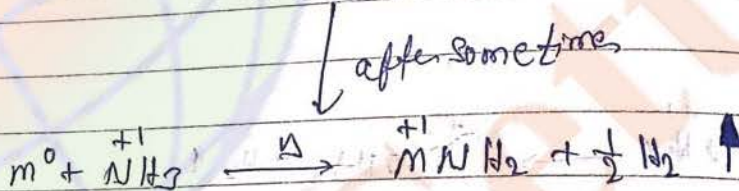 ↓ after sometimes
M⁰ + N⁺¹H₃ —Δ→ M⁺¹NH₂ + ½ H₂ ↑